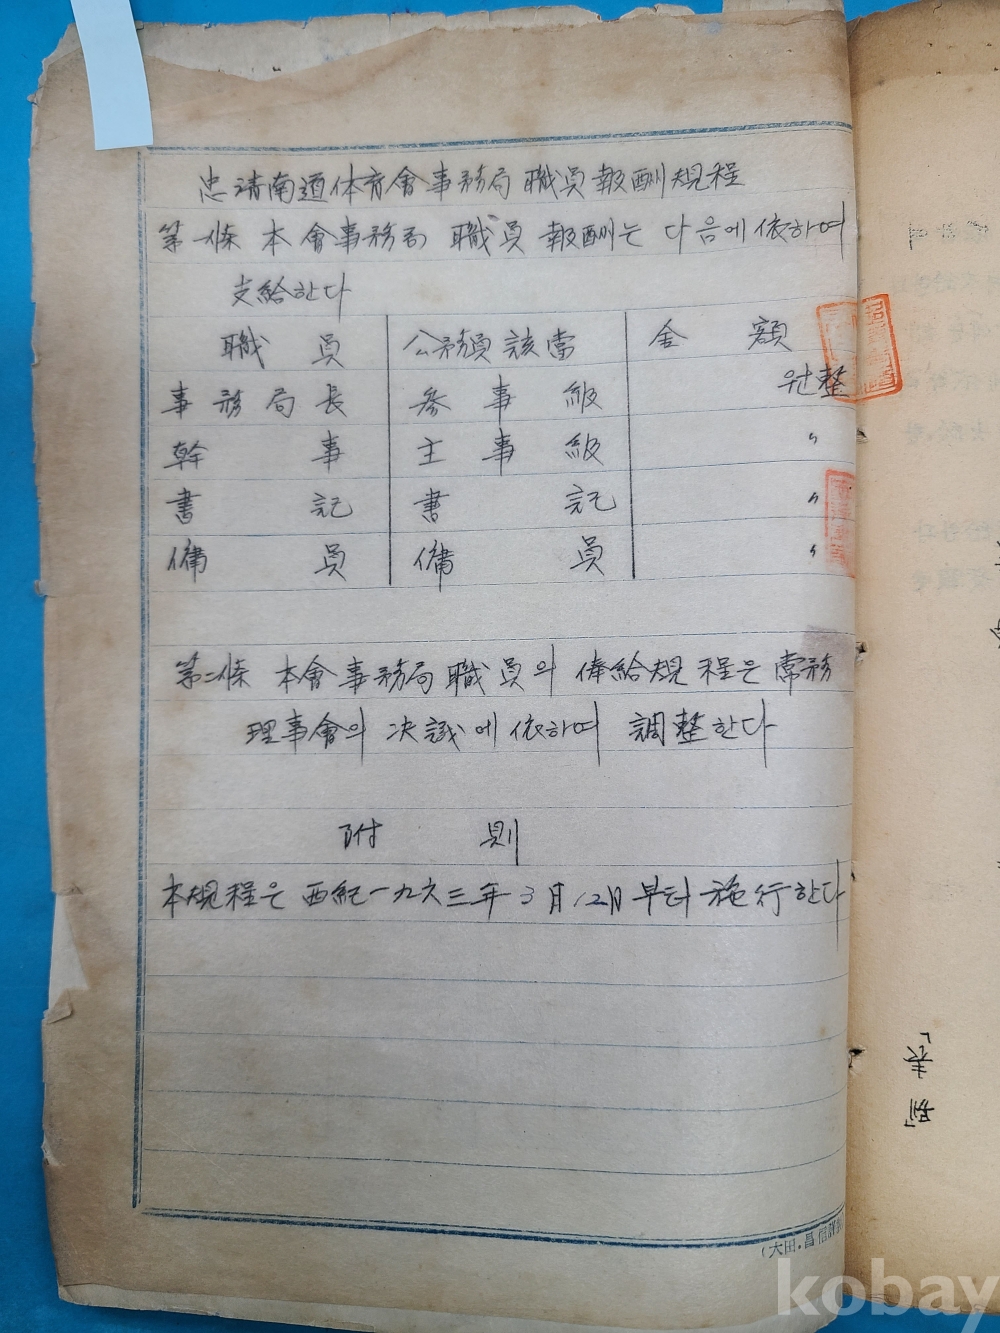 忠淸南道体育會事務局 職員報酬規程
第一條 本會事務局 職員 報酬는 다음에 依하여
支給한다
職員 公務員該當 金額
事務局長 參事級 원整
幹事 主事級 〃
書記 書記 〃
傭員 傭員 〃
第二條 本會事務局職員의 俸給規程은 常務
理事會의 決議에 依하여 調整한다
附則
本規程은 西紀一九六三年 3月12日부터 施行한다
(大田·昌信
kobay